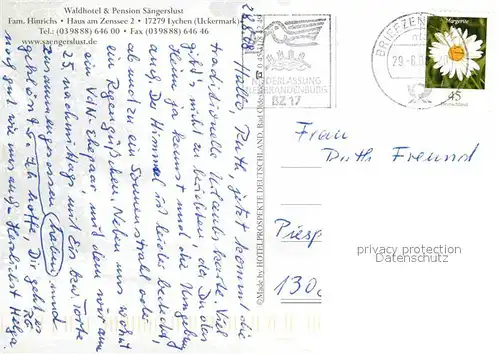 Waldhotel & Pension Sängerslust
Fam. Hinrichs • Haus am Zenssee 2 • 17279 Lychen (Uckermark)
Tel.: (039888) 646 00 • Fax (039888) 646 46
www.saengerslust.de
Hallo, Ruth, jetzt kommt die
traditionelle Urlaubskarte. Viel
gibt's nicht zu berichten, da Du das
Heim ja kennst und die Umgebung
auch. Der Himmel ist leider bedeckt,
ab und zu ein Sonnenstrahl oder
ein Regengüßchen. Neben uns wohnt
ein Ehepaar mit dem wir am
25. nachmittags mit Eis bzw. Torte
zusammengesessen haben und
Ich hoffe, Dir geht es
gut wie uns auch. Herzlichst Helga
©Made by HOTELPROSPEKTE DEUTSCHLAND, Bad
NIEDERLASSUNG
NEUBRANDENBURG
BZ 17
BRIEFZEN
29-6.
Margerite
45
Deutschland
Frau
Ruth Freund
130
privacy protection
Datenschutz